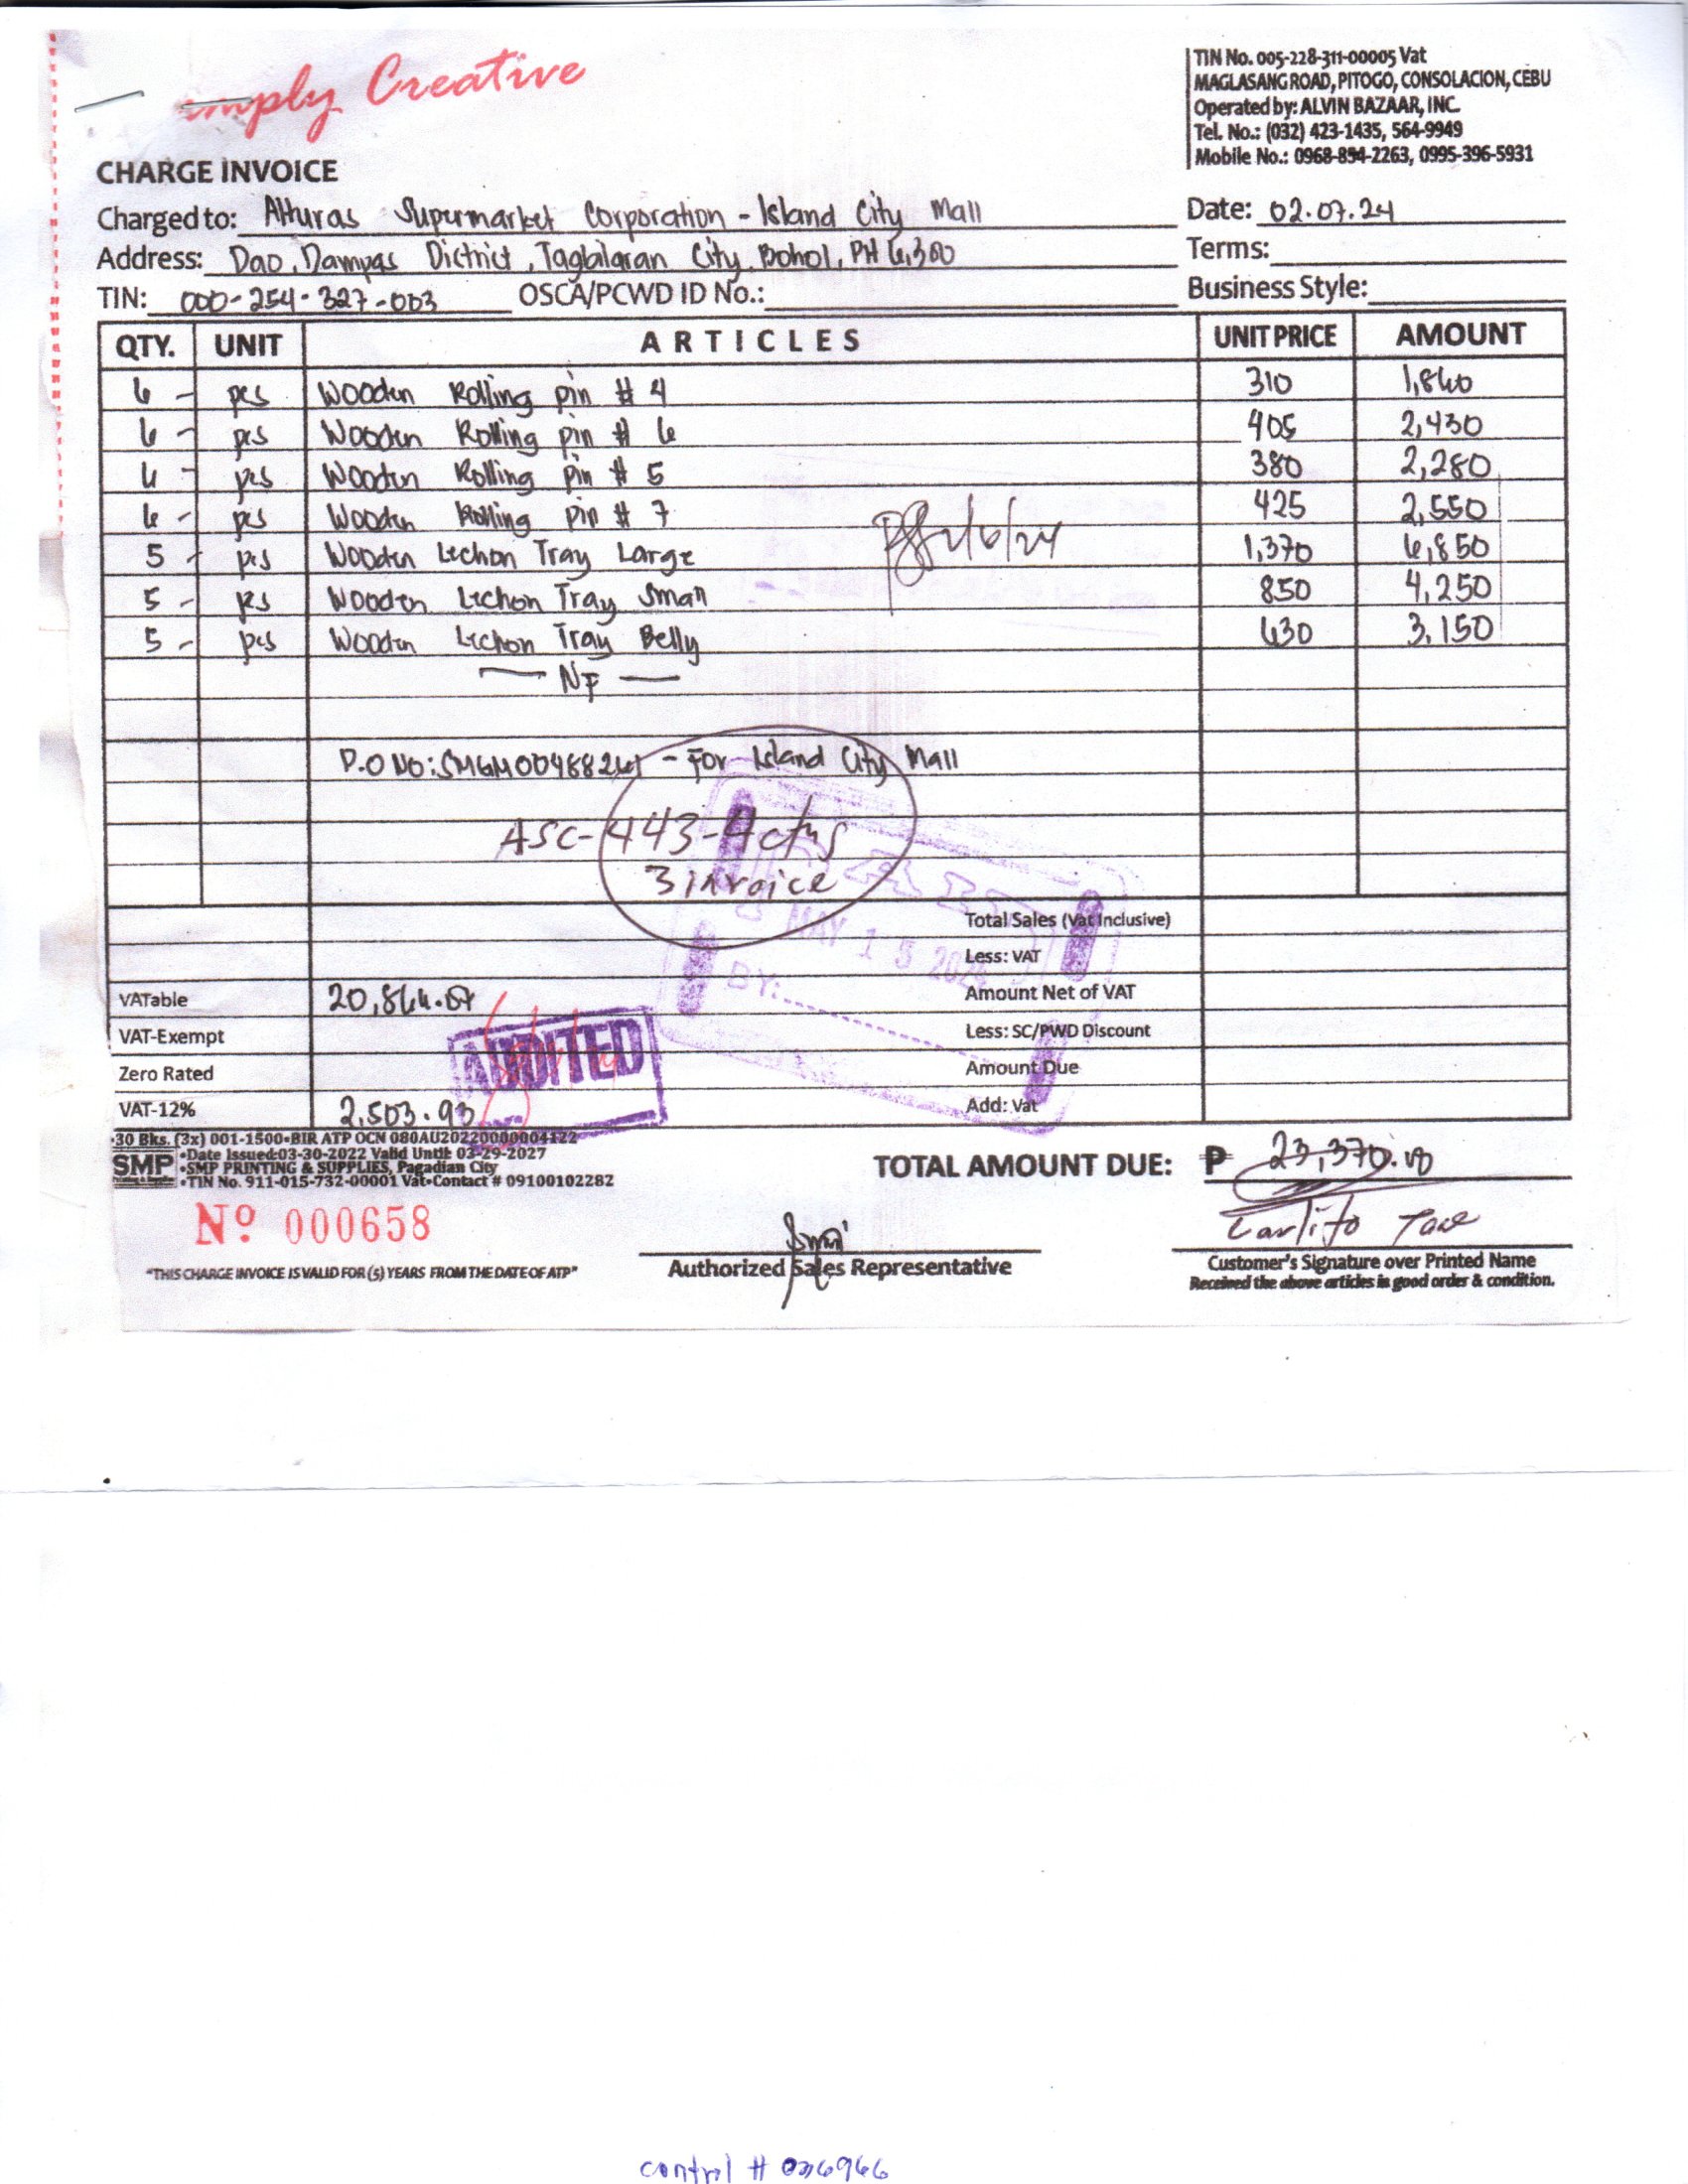 Simply Creative
TIN No. 005-228-311-00005 Vat
MAGLASANG ROAD, PITOGO, CONSOLACION, CEBU
Operated by: ALVIN BAZAAR, INC.
Tel. No.: (032) 423-1435, 564-9949
Mobile No.: 0968-854-2263, 0995-396-5931
CHARGE INVOICE
Charged to: Alturas Supermarket Corporation - Island City Mall Date: 02.07.24
Address: Dao, Dampas District, Tagbilaran City, Bohol, PH 6,300 Terms:
TIN: 000-254-327-003 OSCA/PCWD ID No.: Business Style:
QTY. UNIT ARTICLES UNIT PRICE AMOUNT
6 - pcs Wooden Rolling pin # 4 310 1,860
6 - pcs Wooden Rolling pin # 6 405 2,430
6 - pcs Wooden Rolling pin # 5 380 2,280
6 - pcs Wooden Rolling pin # 7 425 2,550
2/6/24
5 - pcs Wooden Lechon Tray Large 1,370 6,850
5 - pcs Wooden Lechon Tray Small 850 4,250
5 - pcs Wooden Lechon Tray Belly 630 3,150
— NF —
P.O NO: - For Island City Mall
ASC-443-4ctns
3 invoice
MAY 15 2024
BY:
Total Sales (Vat Inclusive)
Less: VAT
VATable 20,866.07 Amount Net of VAT
VAT-Exempt Less: SC/PWD Discount
AUDITED
Zero Rated Amount Due
VAT-12% 2,503.93 Add: Vat
30 Bks. (3x) 001-1500•BIR ATP OCN 080AU20220000004122
SMP •Date Issued:03-30-2022 Valid Until: 03-29-2027
•SMP PRINTING & SUPPLIES, Pagadian City
•TIN No. 911-015-732-00001 Vat•Contact # 09100102282
TOTAL AMOUNT DUE: P 23,370.00
Nº 000658
Carlito
Authorized Sales Representative
Customer's Signature over Printed Name
"THIS CHARGE INVOICE IS VALID FOR (5) YEARS FROM THE DATE OF ATP"
Received the above articles in good order & condition.
control # 036966